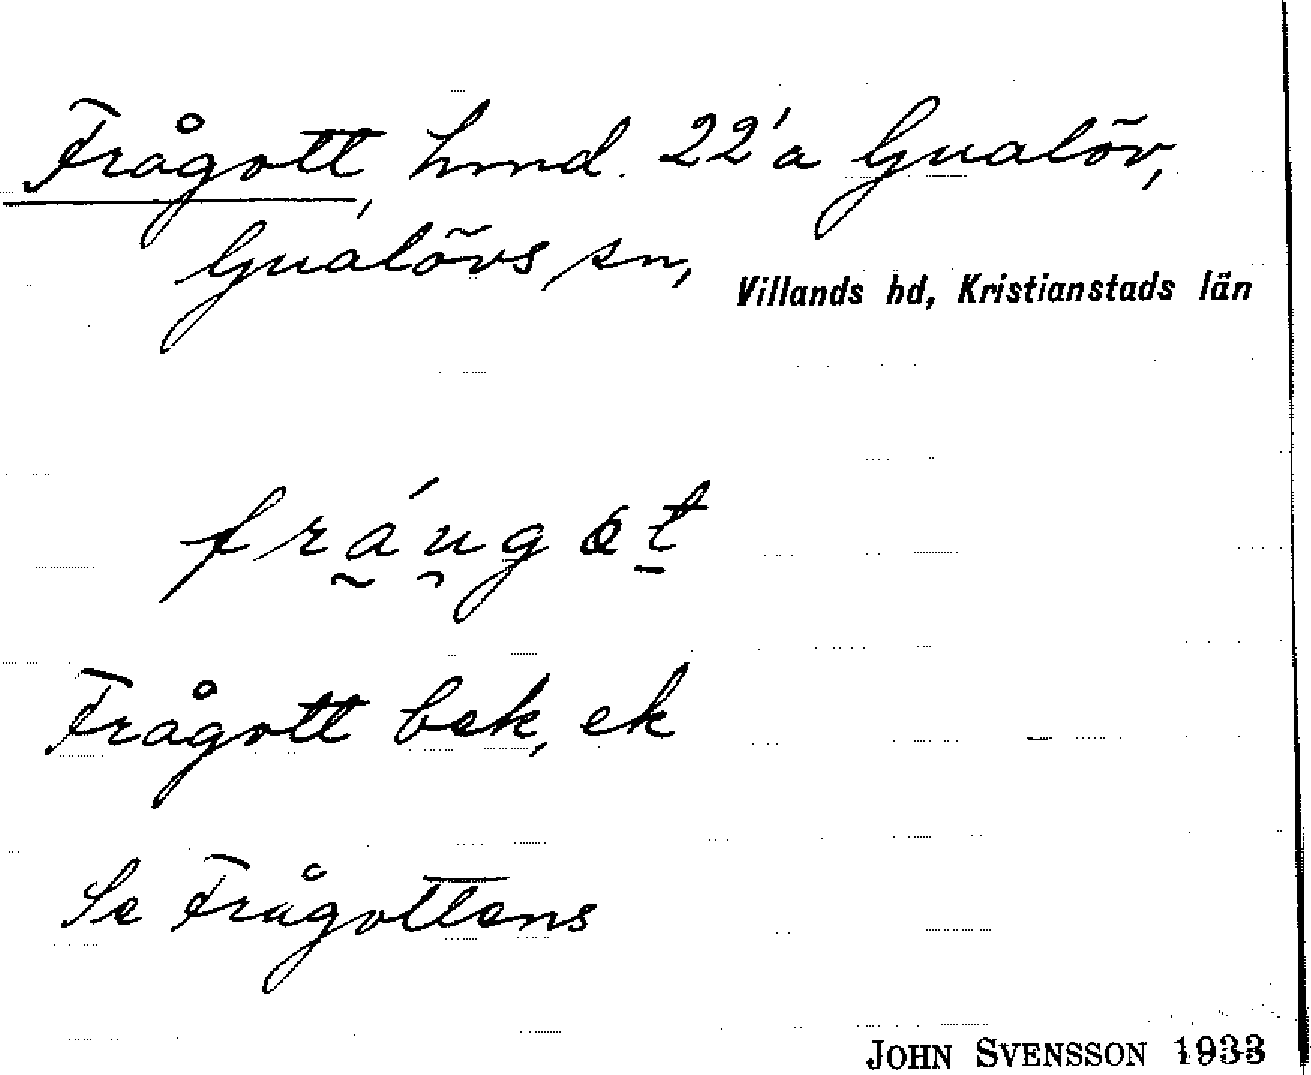 Frågott, hmd. 22'a Gualöv,
Gualövs sn, Villands hd, Kristianstads län
frá̰u̯got̲
Frågott bek, ek
Se Frågottens
JOHN SVENSSON 1933